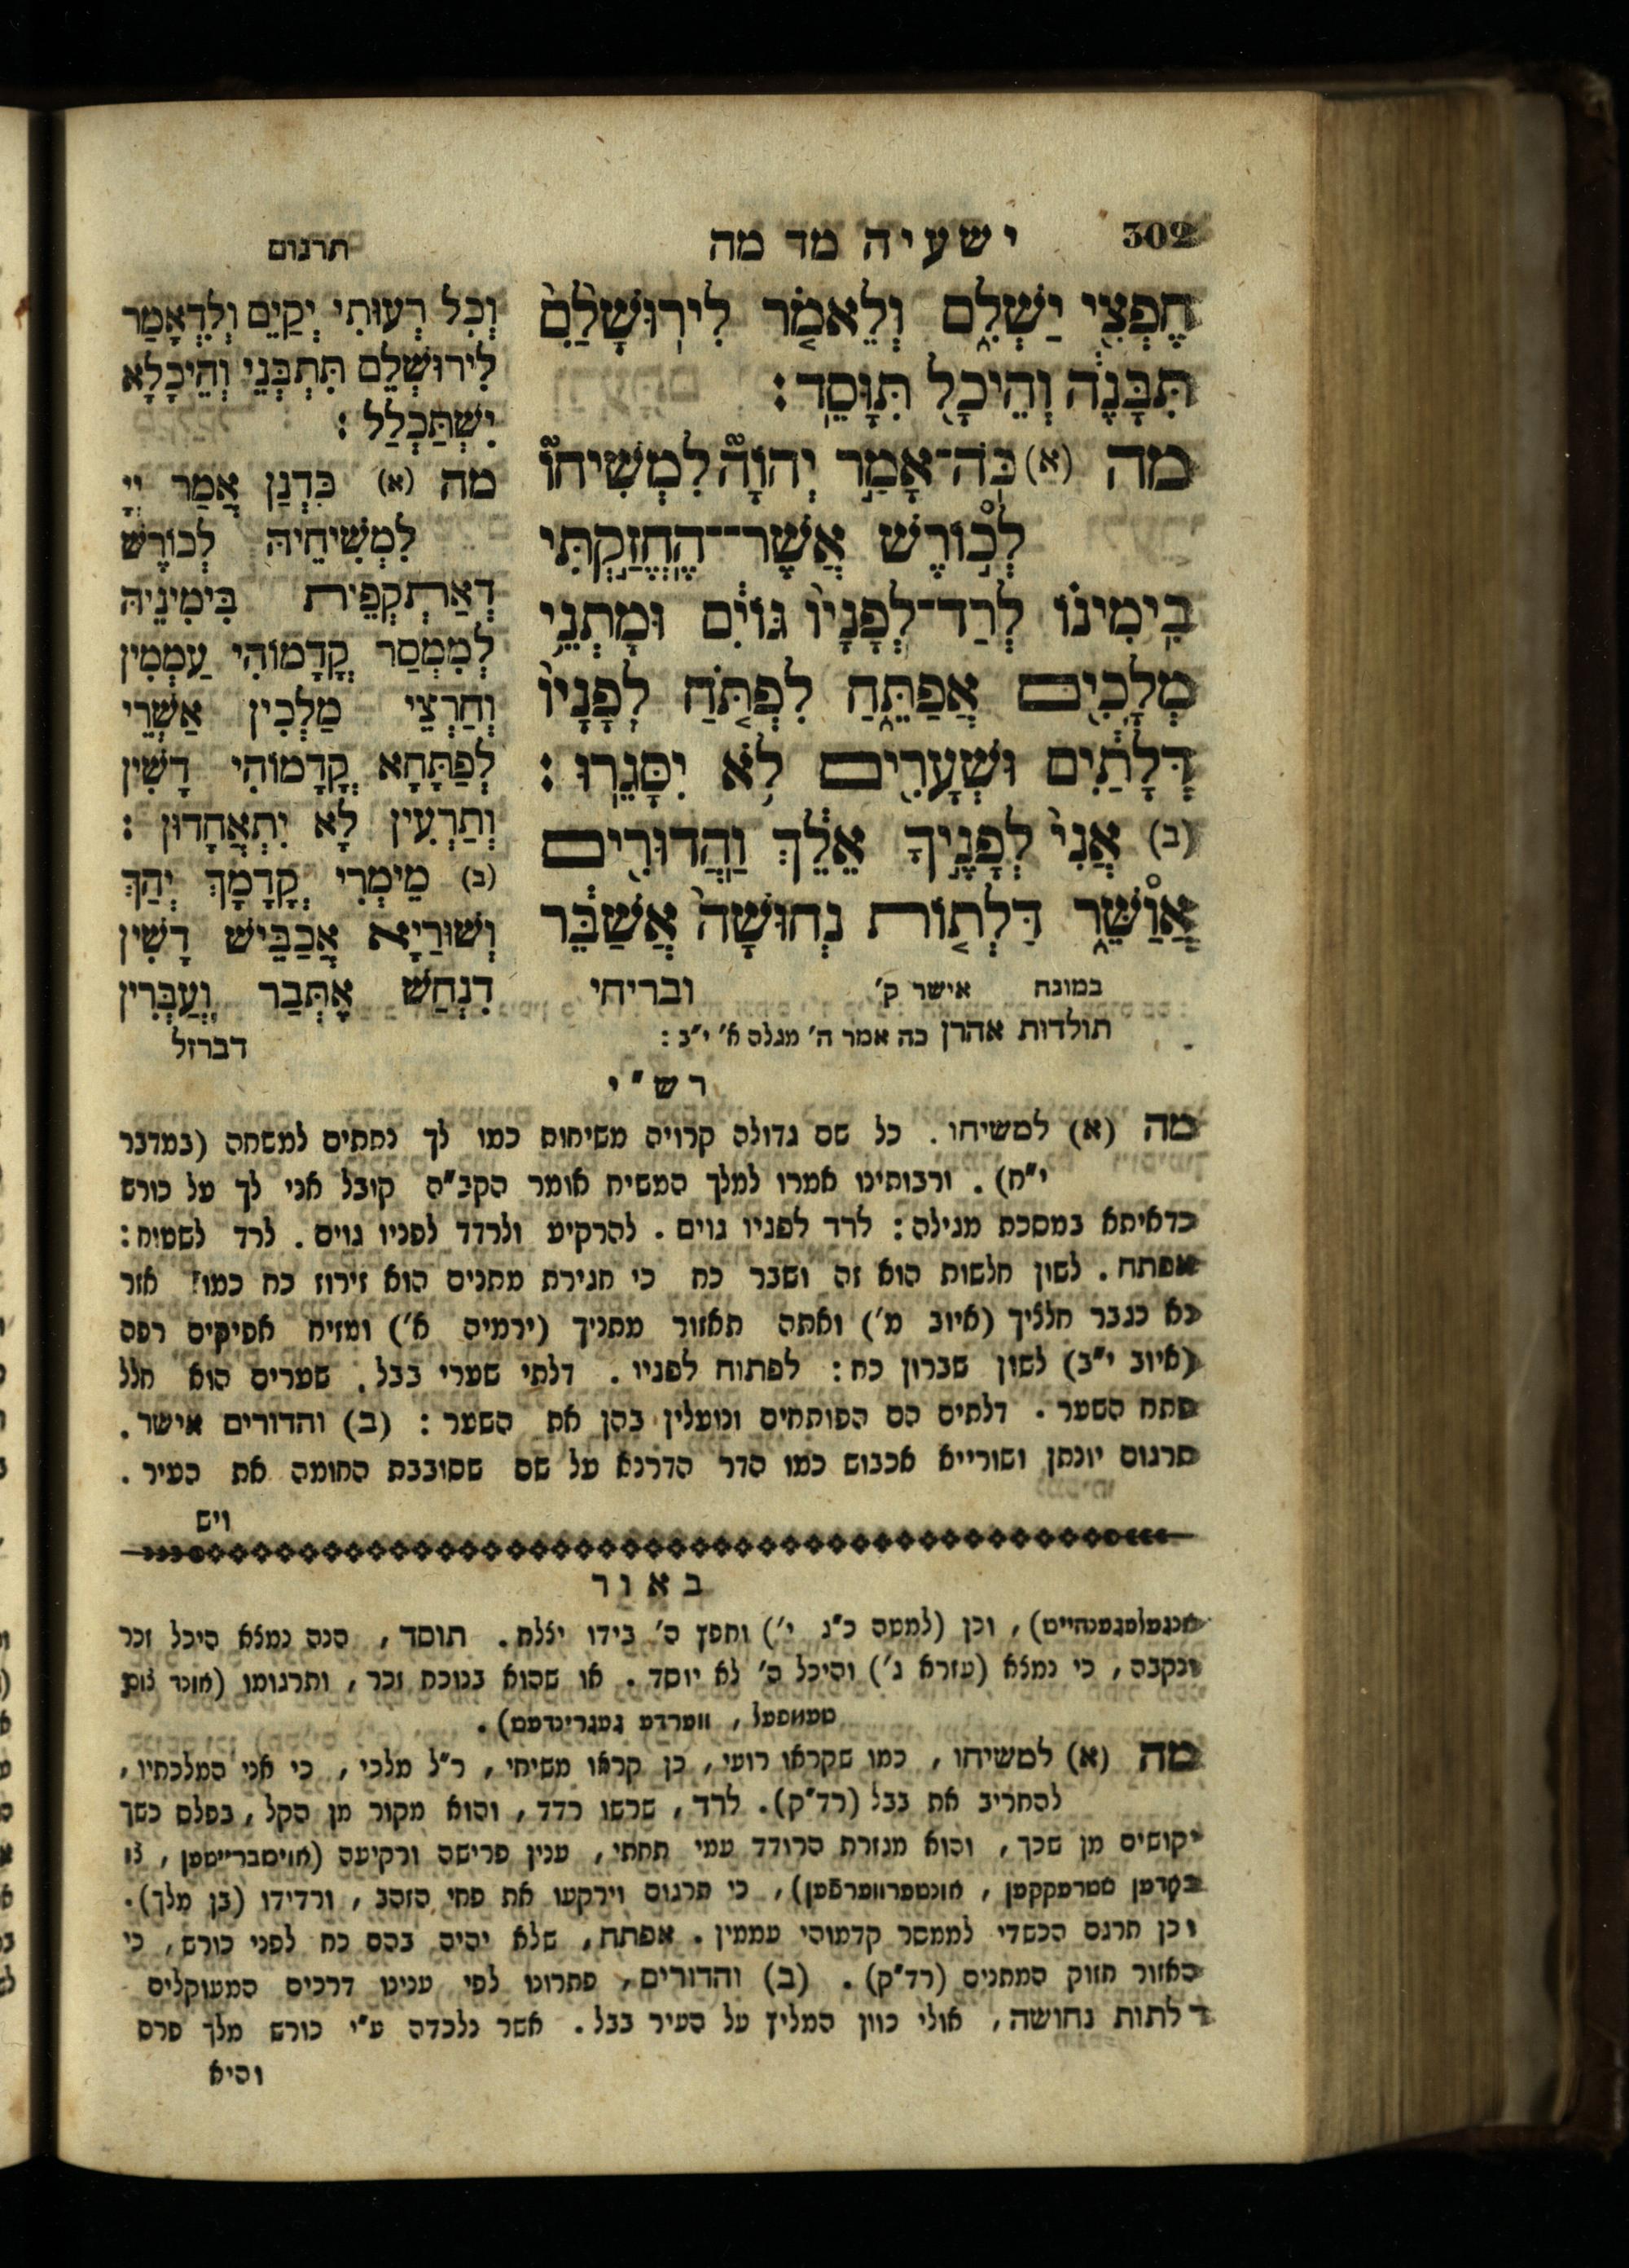 302 ישעיה מד מה
חֶפְצִ֖י יַשְׁלִ֑ם וְלֵאמֹ֤ר לִירֽוּשָׁלִַ֙ם֙
תִּבָּנֶ֔ה וְהֵיכָ֖ל תִּוָּסֵֽד׃
מה (א) כֹּֽה־אָמַ֣ר יְהוָה֮ לִמְשִׁיחוֹ֮
לְכ֣וֹרֶשׁ אֲשֶׁר־הֶחֱזַ֣קְתִּי
בִֽימִינ֗וֹ לְרַד־לְפָנָיו֙ גּוֹיִ֔ם וּמָתְנֵ֥י
מְלָכִ֖ים אֲפַתֵּ֑חַ לִפְתֹּ֤חַ לְפָנָיו֙
דְּלָתַ֔יִם וּשְׁעָרִ֖ים לֹ֥א יִסָּגֵֽרוּ׃
(ב) אֲנִי֙ לְפָנֶ֣יךָ אֵלֵ֔ךְ וַהֲדוּרִ֖ים
אֲוַשֵּׁ֑ר דַּלְת֤וֹת נְחוּשָׁה֙ אֲשַׁבֵּ֔ר
במונח אישר ק׳ ובריחי
תולדות אהרן כה אמר ה׳ מגלה א׳ י״ב :
תרגום
וְכָל רְעוּתִי יְקַיֵּם וְלִדְאָמַר
לִירוּשְׁלֵם תִּתְבְּנֵי וְהֵיכָלָא
יִשְׁתַּכְלַל :
מה (א) כִּדְנַן אֲמַר יְיָ
לִמְשִׁיחֵיהּ לְכוֹרֶשׁ
דְאַתְקְפֵית בִּימִינֵיהּ
לְמִמְסַר קֳדָמוֹהִי עַמְמִין
וְחַרְצֵי מַלְכִין אַשְׁרֵי
לְפַתָּחָא קֳדָמוֹהִי דָשִׁין
וְתַרְעִין לָא יִתְאֲחָדוּן :
(ב) מֵימְרִי קֳדָמָךְ יְהַךְ
וְשׁוּרַיָא אֲכַבֵּישׁ דָשִׁין
דִנְחַשׁ אֲתַּבַּר וְעַבְּרִין
דברזל
רש״י
מה (א) למשיחו . כל שם גדולה קרויה משיחות כמו לך נתתים למשחה (במדבר
י״ח) . ורבותינו אמרו למלך המשיח אומר הקב״ה קובל אני לך על כורש
כדאיתא במסכת מגילה : לרד לפניו גוים . להרקיע ולרדד לפניו גוים . לרד לשטוח :
אפתח . לשון חלשות הוא זה ושבר כח כי חגירת מתנים הוא זירוז כח כמו אזר
נא כגבר חלציך (איוב מ׳) ואתה תאזור מתניך (ירמיה א׳) ומזיח אפיקים רפה
(איוב י״ב) לשון שברון כח : לפתוח לפניו . דלתי שערי בבל . שערים הוא חלל
פתח השער . דלתים הם הפותחים ונועלין בהן את השער : (ב) והדורים אישר .
תרגום יונתן ושורייא אכבוש כמו הדר הדרנא על שם שסובבת החומה את העיר .
ויש
באור
אנגעלעגענהייט) , וכן (למטה כ״ג י׳) וחפץ ה׳ בידו יצלח . תוסד , הנה נמצא היכל זכר
ונקבה , כי נמצא (עזרא ג׳) והיכל ה׳ לא יוסד . או שהוא בנוכח זכר , ותרגומו (אונד צום
טעמפעל , ווערדע געגרינדעט) .
מה (א) למשיחו , כמו שקראו רועי , כן קראו משיחי , ר״ל מלכי , כי אני המלכתיו ,
להחריב את בבל (רד״ק) . לרד , שרשו רדד , והוא מקור מן הקל , בפלס כשך
יקושים מן שכך , והוא מגזרת הרודד עמי תחתי , ענין פרישה ורקיעה (אויסברייטען , צו
באָדען שטרעקקען , אונטערווערפֿען) , כי תרגום וירקעו את פחי הזהב , ורדידו (בן מלך) .
וכן תרגם הכשדי לממסר קדמוהי עממין . אפתח , שלא יהיה בהם כח לפני כורש , כי
האזור חזוק המתנים (רד״ק) . (ב) והדורים , פתרונו לפי ענינו דרכים המעוקלים
דלתות נחושה , אולי כוון המליץ על העיר בבל . אשר נלכדה ע״י כורש מלך פרס
והיא